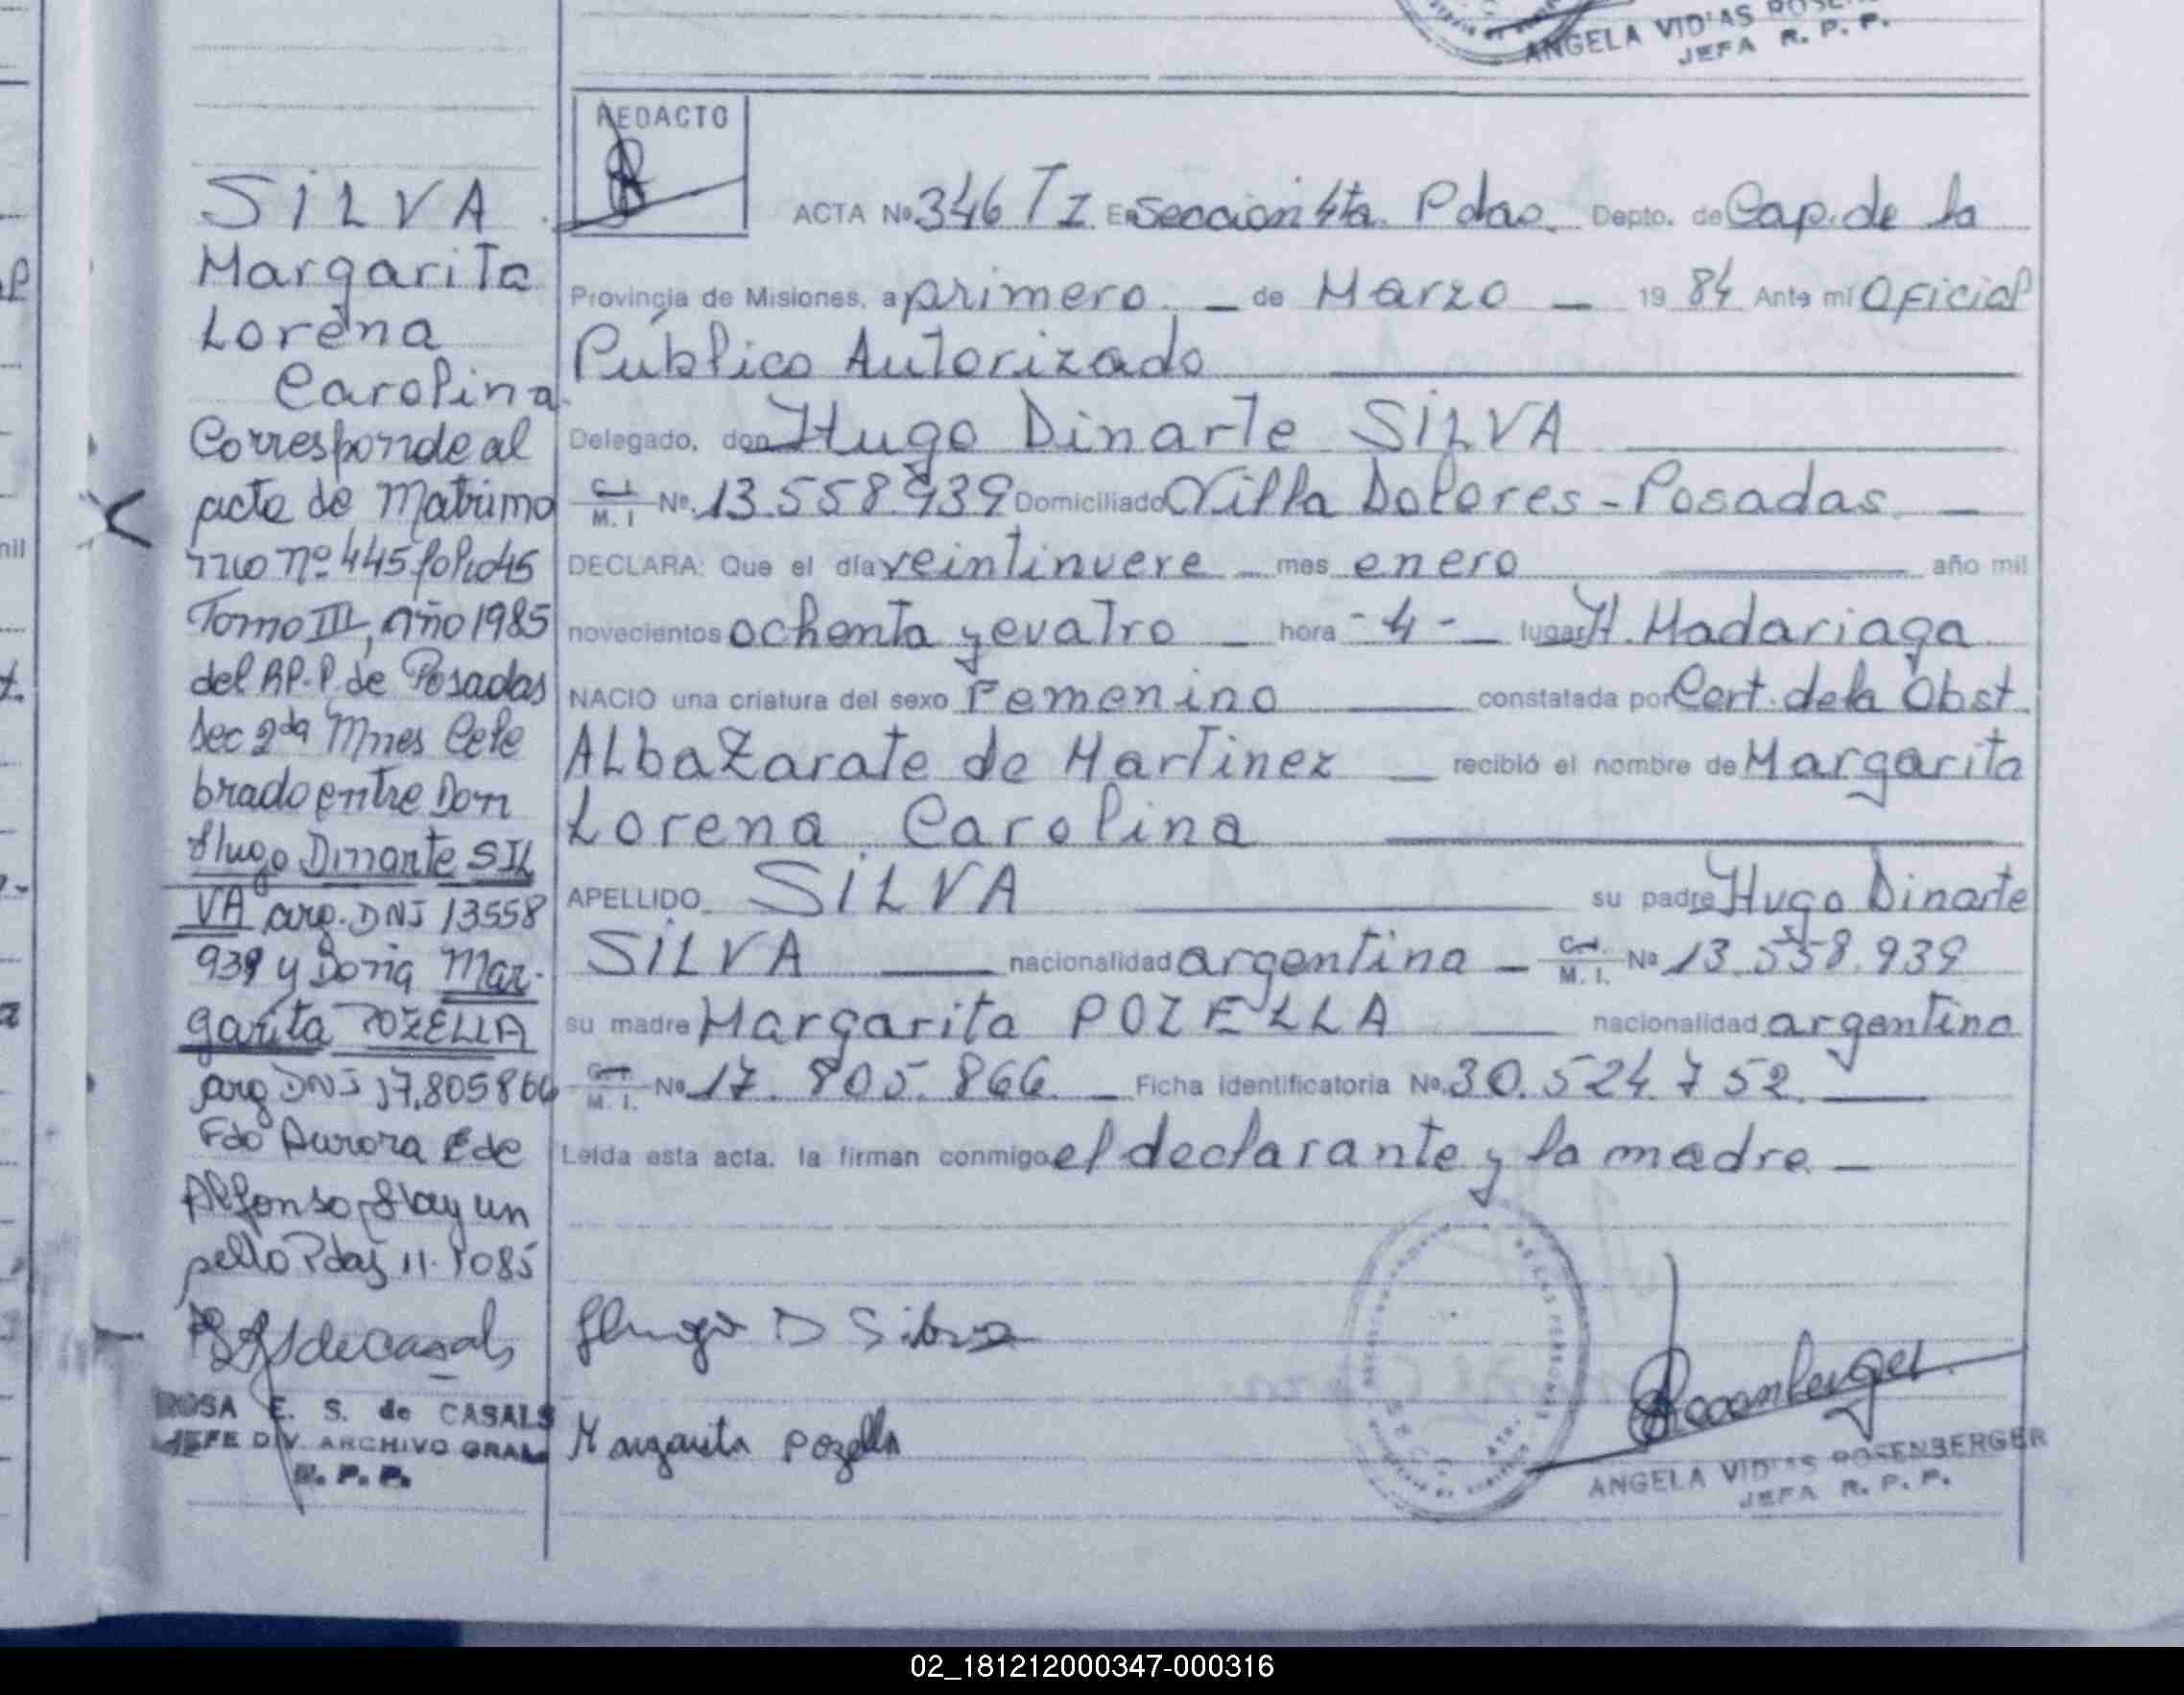 ANGELA VIDIAS
JEFA R. P. P.
REDACTO
SILVA
Margarita
Lorena
Carolina
Corresponde al
acta de Matrimo
nio nº 445 folio 45
Tomo III, Año 1985
del RP.P. de Posadas
Sec 2da Mnes Cele
brado entre Don
Hugo Dinarte SIL
VA arg. DNI 13558
939 y Doña Mar-
garita POZELLA
arg DNI 17.805866
Fdo Aurora E de
Alfonso, Hay un
sello Pdas 11.1085
ROSA E. S. de CASALS
JEFE DIV. ARCHIVO GRAL
R. P. P.
ACTA Nº 346 TI En Seccion 4ta. Pdas. Depto. de Cap. de la
Provincia de Misiones, a primero de Marzo 19 84 Ante mi Oficial
Público Autorizado
Delegado, don Hugo Dinarte SILVA
C. I. M. I Nº. 13.558.939 Domiciliado Villa Dolores - Posadas
DECLARA: Que el día veintinueve mes enero año mil
novecientos ochenta y cuatro hora - 4 - lugar H. Madariaga
NACIO una criatura del sexo Femenino constatada por Cert. de la Obst.
Alba Zarate de Martinez recibió el nombre de Margarita
Lorena Carolina
APELLIDO SILVA su padre Hugo Dinarte
SILVA nacionalidad argentina C. I. M. I. Nº 13.558.939
su madre Margarita POZELLA nacionalidad argentina
C. I. M. I. Nº 17.805.866 Ficha identificatoria Nº. 30.524.752.
Leída esta acta, la firman conmigo el declarante y la madre
Hugo D Silva
Margarita Pozella
Rosenberger
ANGELA VIDIAS ROSENBERGER
JEFA R. P. P.
02_181212000347-000316